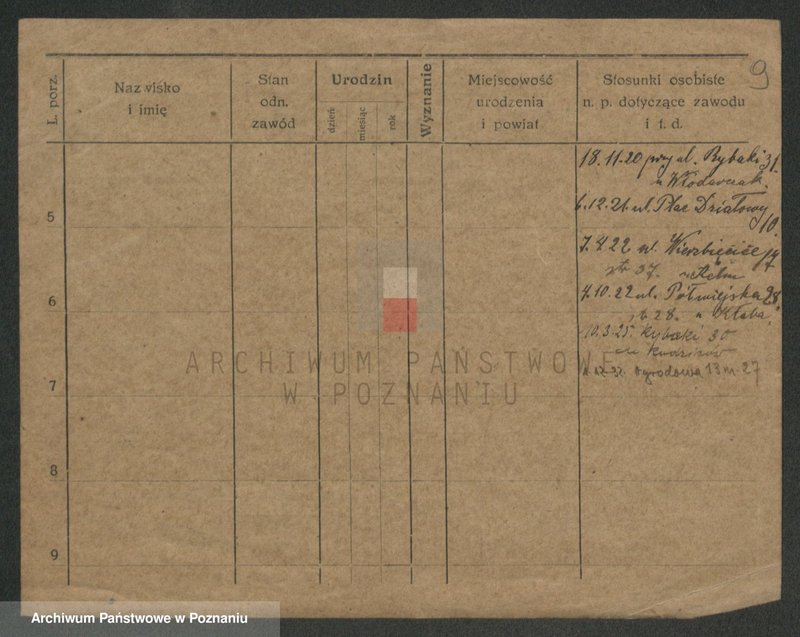 9
L. porz.
Nazwisko
i imię
Stan
odn.
zawód
Urodzin
dzień
miesiąc
rok
Wyznanie
Miejscowość
urodzenia
i powiat
Stosunki osobiste
n. p. dotyczące zawodu
i t. d.
18.11.20 przy ul. Rybaki 31.
u Włodarczak.
5
6.12.21 ul. Plac Działowy
10.
7.4.22 ul. Wierzbięcice
37.
6
7.10.22 ul. Półwiejska 28
28. u Kłaba
10.3.25. Rybaki 30
7
Ogrodowa 13 m. 27
8
9
ARCHIWUM PAŃSTWOWE
W POZNANIU
Archiwum Państwowe w Poznaniu